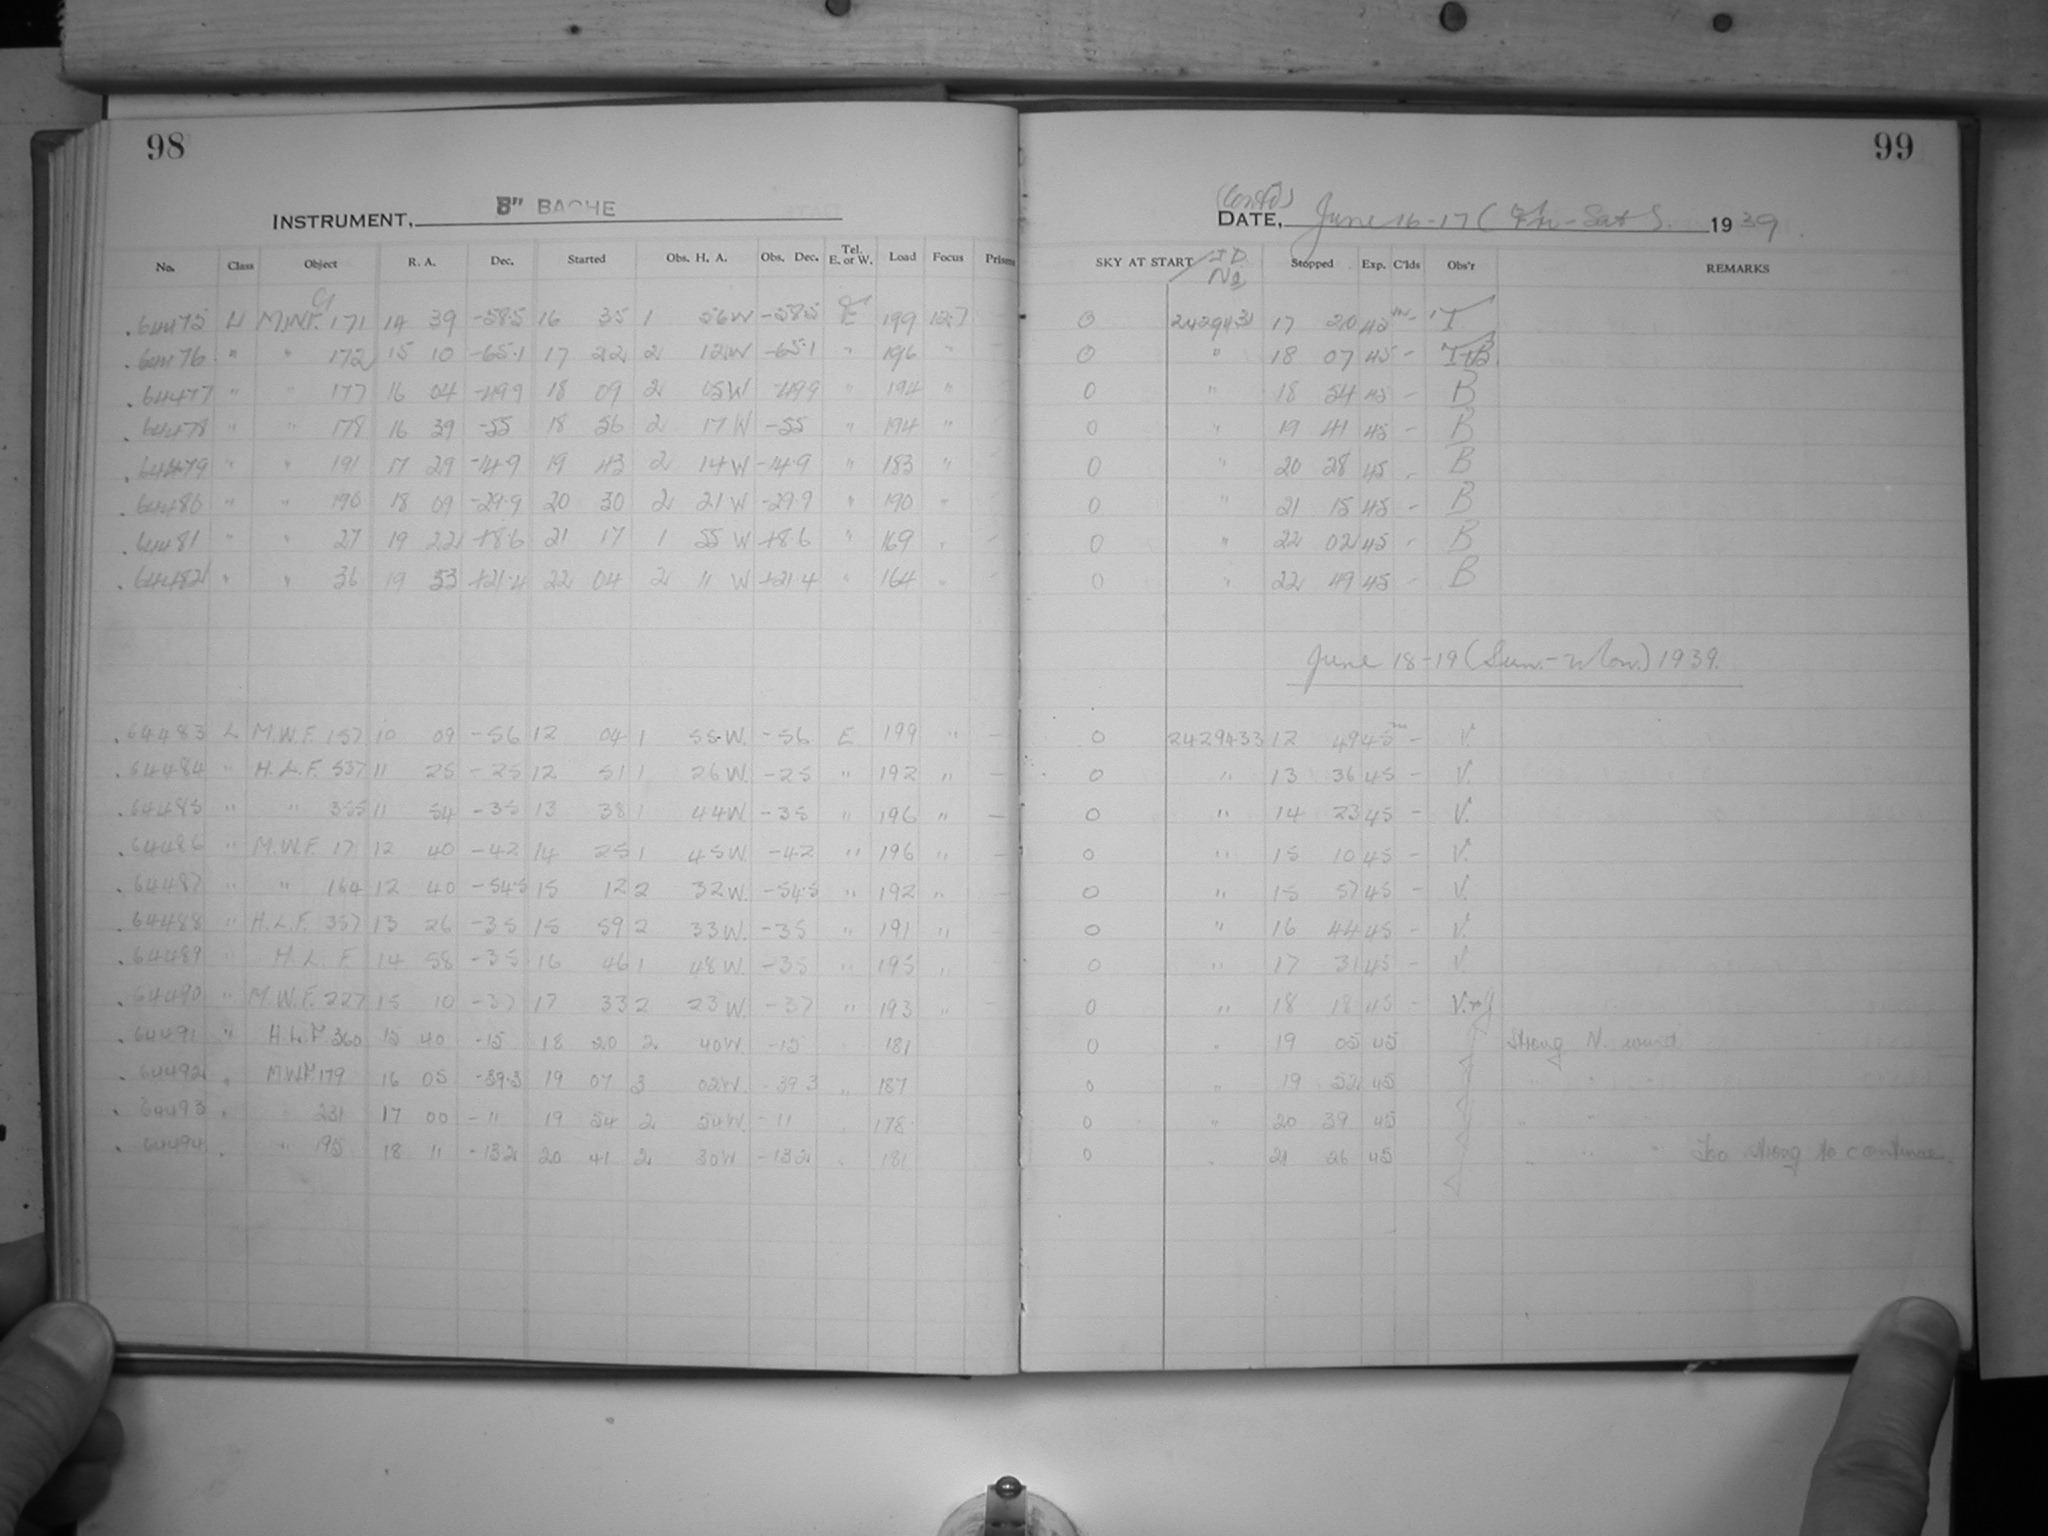 98
INSTRUMENT, "B" BACHE
No. Class Object R. A. Dec. Started Obs. H. A. Obs. Dec. Tel. E. or W. Load Focus Prisms
64475 L M.W.F. 171 14 39 -58.5 16 35 1 56W -58.5 E 199 12.7
64476 " " 172 15 10 -65.1 17 22 2 12W -65.1 " 196 "
64477 " " 177 16 04 -49.9 18 09 2 05W -49.9 " 194 "
64478 " " 178 16 39 -55 18 56 2 17W -55 " 194 "
64479 " " 191 17 29 -14.9 19 43 2 14W -14.9 " 183 "
64480 " " 190 18 09 -29.9 20 30 2 21W -29.9 " 190 "
64481 " " 27 19 22 +8.6 21 17 1 55W +8.6 " 169 "
64482 " " 36 19 53 +21.4 22 04 2 11W +21.4 " 164 "
64483 L M.W.F. 157 10 09 -56 12 04 1 55W. -56 E 199 " -
64484 " H.L.F. 537 11 25 -25 12 51 1 26W. -25 " 192 " -
64485 " " 355 11 54 -35 13 38 1 44W. -35 " 196 " -
64486 " M.W.F. 171 12 40 -42 14 25 1 45W. -42 " 196 " -
64487 " " 164 12 40 -54.5 15 12 2 32W. -54.5 " 192 " -
64488 " H.L.F. 357 13 26 -35 15 59 2 33W. -35 " 191 " -
64489 " H.L.F 14 58 -35 16 46 1 48W. -35 " 195 " -
64490 " M.W.F. 227 15 10 -37 17 33 2 23W. -37 " 193 " -
64491 " H.L.F 360 15 40 -15 18 20 2 40W. -15 181
64492 " M.W.F 179 16 05 -39.3 19 07 3 02W. -39.3 " 187
64493 " " 231 17 00 -11 19 54 2 54W. -11 178
64494 " " 195 18 11 -13.2 20 41 2 30W -13.2 " 181
99
(Contd)
DATE, June 16-17 (Fri-Sat). 1939.
SKY AT START J.D. No Stopped Exp. C'lds Obs'r REMARKS
0 2429431 17 20 45m - T
0 " 18 07 45 - T+B
0 " 18 54 45 - B
0 " 19 41 45 - B
0 " 20 28 45 - B
0 " 21 15 45 - B
0 " 22 02 45 - B
0 " 22 49 45 - B
June 18-19 (Sun.-Mon.) 1939.
0 2429433 12 49 45m - V.
0 " 13 36 45 - V.
0 " 14 23 45 - V.
0 " 15 10 45 - V.
0 " 15 57 45 - V.
0 " 16 44 45 - V.
0 " 17 31 45 - V.
0 " 18 18 45 - V.+J
0 " 19 05 45 J Strong N. wind
0 " 19 52 45 J " " "
0 " 20 39 45 J " " "
0 " 21 26 45 J " " " Too strong to continue.